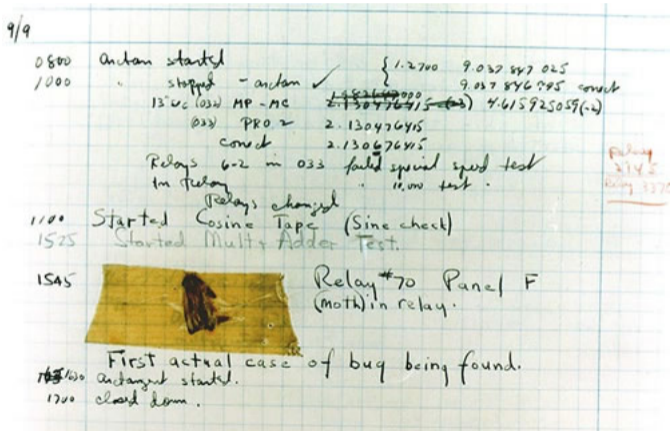 9/9
0800 Antan started { 1.2700 9.037 847 025
1000 " stopped - antan ✓ 9.037 846 995 conect
13"uc (032) MP - MC 2.130476415 (-3) 4.615925059(-2)
(033) PRO 2 2.130476415
conect 2.130676415
Relays 6-2 in 033 failed special speed test
In Relay " 10.000 test .
Relays changed
Relay
Relay 3370
1100 Started Cosine Tape (Sine check)
1525 Started Mult + Adder Test.
1545 Relay #70 Panel F
(moth) in relay.
First actual case of bug being found.
1630 antangent started.
1700 closed down.